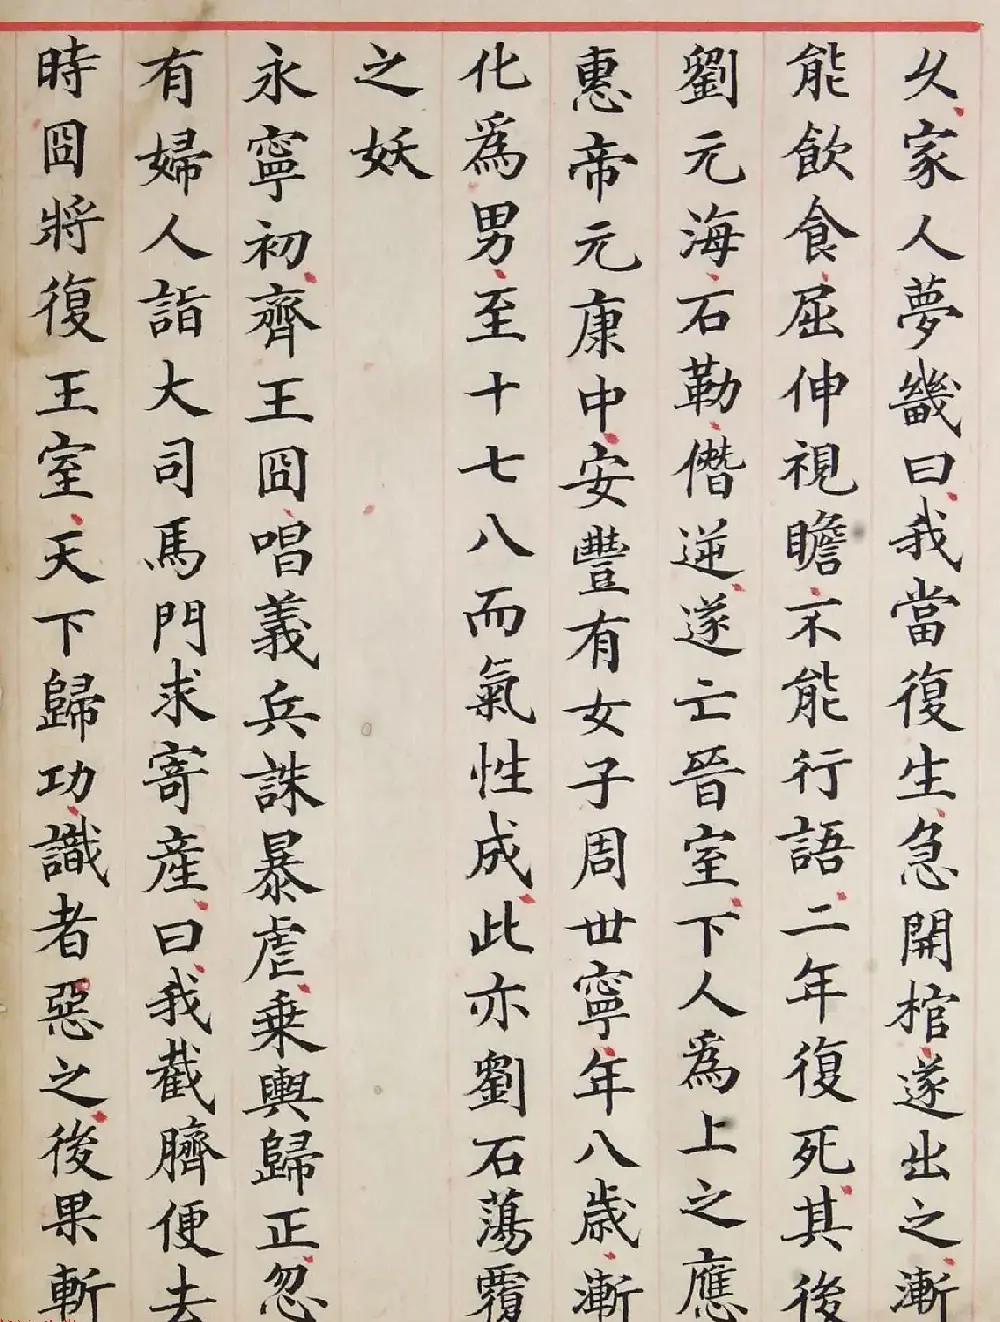 久家人夢畿曰我當復生急開棺遂出之漸
能飲食屈伸視瞻不能行語二年復死其後
劉元海石勒僭逆遂亡晉室下人為上之應
惠帝元康中安豐有女子周世寧年八歲漸
化為男至十七八而氣性成此亦劉石蕩覆
之妖
永寧初齊王冏唱義兵誅暴虐乘輿歸正忽
有婦人詣大司馬門求寄產曰我截臍便去
時冏將復王室天下歸功識者惡之後果斬